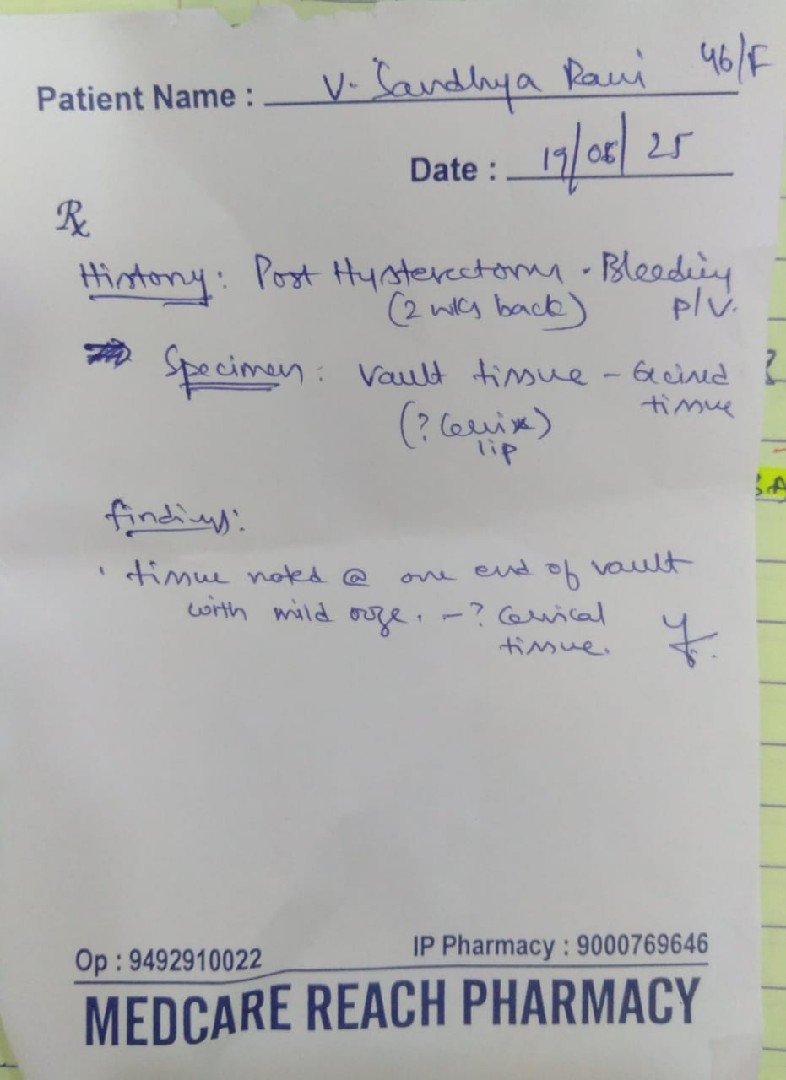 Patient Name : V. Sandhya Rani 46/F
Date : 19/08/25
Rx
History : Post Hysterectomy . Bleeding
(2 wks back) P/V.
Specimen : Vault tissue - Excised
tissue
(? Cervix)
lip
findings:
. tissue noted @ one end of vault
with mild ooze. - ? Cervical
tissue.
Op : 9492910022 IP Pharmacy : 9000769646
MEDCARE REACH PHARMACY